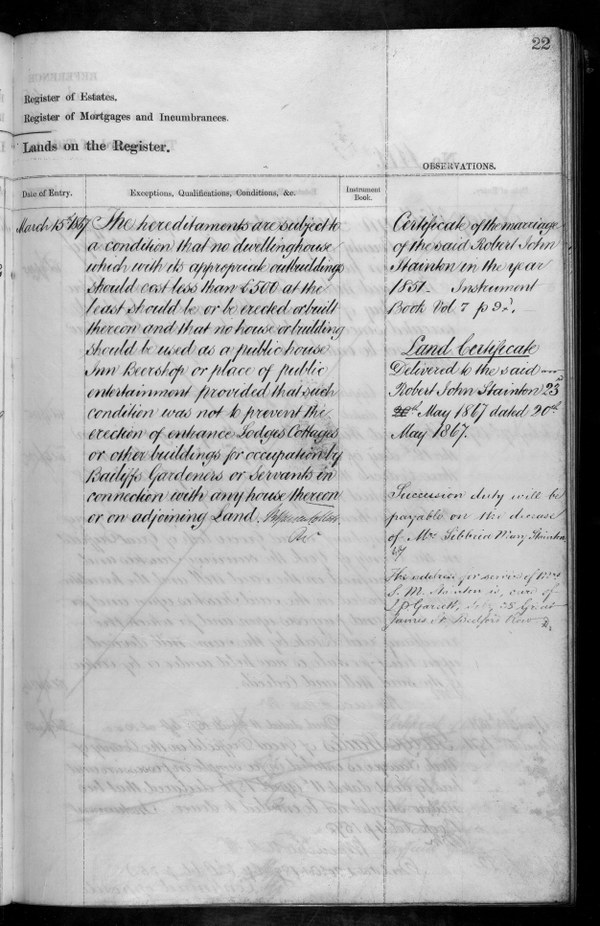 22
Register of Estates.
Register of Mortgages and Incumbrances.
Lands on the Register.
OBSERVATIONS.
Date of Entry.
Exceptions, Qualifications, Conditions, &c.
Instrument
Book.
March 15th 1867
The hereditaments are subject to
a condition that no dwellinghouse
which with its appropriate outbuildings
should cost less than £500 at the
least should be or be erected or built
thereon and that no house or building
should be used as a public house
Inn Beershop or place of public
entertainment provided that such
condition was not to prevent the
erection of entrance Lodges Cottages
or other buildings for occupation by
Bailiffs Gardeners or Servants in
connection with any house thereon
or on adjoining Land.
Certificate of the marriage
of the said Robert John
Stainton in the year
1851. Instrument
Book Vol 7 p 92.
Land Certificate
Delivered to the said
Robert John Stainton 23rd
May 1867 dated 20th
May 1867.
Succession duty will be
payable on the decease
of Mrs Sibbella Mary Stainton
The address for service of Mrs
S. M. Stainton is, care of
J. P. Garrett, Esq. 25 Great
James St. Bedford Row